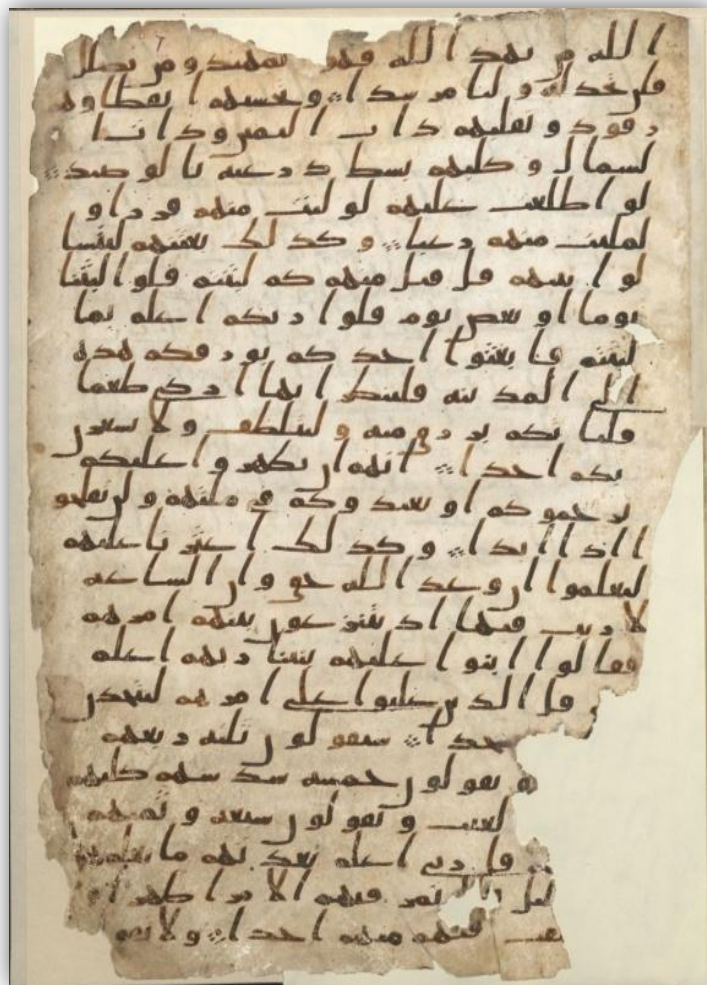 الله من يهد الله فهو المهتد ومن يضلل
فلن تجد له وليا مرشدا وتحسبهم ايقظا وهم
رقود ونقلبهم ذات اليمين وذات ا
لشمال وكلبهم بسط ذرعيه بالوصيد
لو اطلعت عليهم لوليت منهم فررا و
لملئت منهم رعبا وكذلك بعثنهم ليتسا
لوا بينهم قل قيل منهم كم لبثتم قلوا لبثنا
يوما او بعض يوم قلوا ربكم اعلم بما
لبثتم فابعثوا احدكم بورقكم هذه
الى المدينة فلينظر ايها ازكى طعما
فلياتكم برزق منه وليتلطف ولا يشعرن
بكم احدا انهم ان يظهروا عليكم
يرجموكم او يعيدوكم في ملتهم ولن تفلحو
ا اذا ابدا وكذلك اعثرنا عليهم
ليعلموا ان وعد الله حق وان الساعة
لا ريب فيها اذ يتنزعون بينهم امرهم
فقالوا ابنوا عليهم بنينا ربهم اعلم
قل الذين غلبوا على امرهم لنتخذن
جدا سيقولون ثلثة ربعهم
يقولون خمسة سدسهم كلبهم
لغيب ويقولون سبعة وثمنهم
قل ربي اعلم بعدتهم ما يعلمهم
تمر فيهم الا مرا ظهرا
فيهم منهم احدا ولا تقو